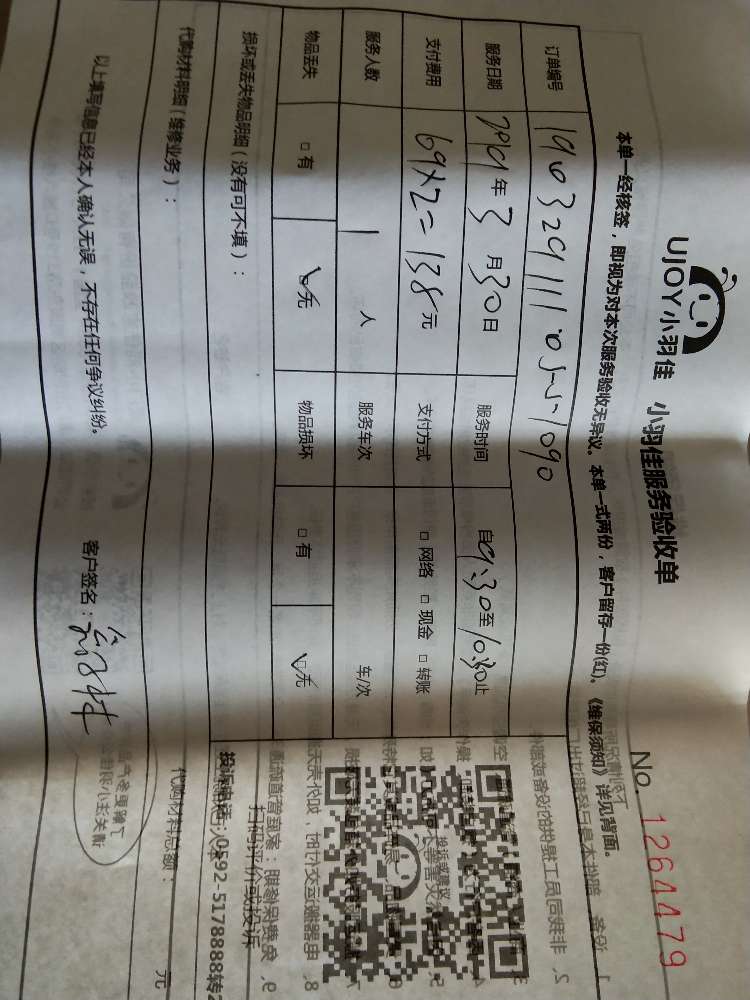 UJOY小羽佳 小羽佳服务验收单
No. 1264479
本单一经核签，即视为对本次服务验收无异议。本单一式两份，客户留存一份(红)。《维保须知》详见背面。
订单编号
服务日期 年3月30日 服务时间 自9:30至10:30止
支付费用 69×2=138元 支付方式 □网络 □现金 □转账
服务人数 1 人 服务车次 车/次
物品丢失 □有 ☑无 物品损坏 □有 ☑无
损坏或丢失物品明细（没有可不填）：
投诉或建议
扫码评价或投诉
投诉电话：0592-5178888转2
代购材料明细（维修业务）： 代购材料总额： 元
以上填写信息已经本人确认无误，不存在任何争议纠纷。 客户签名：